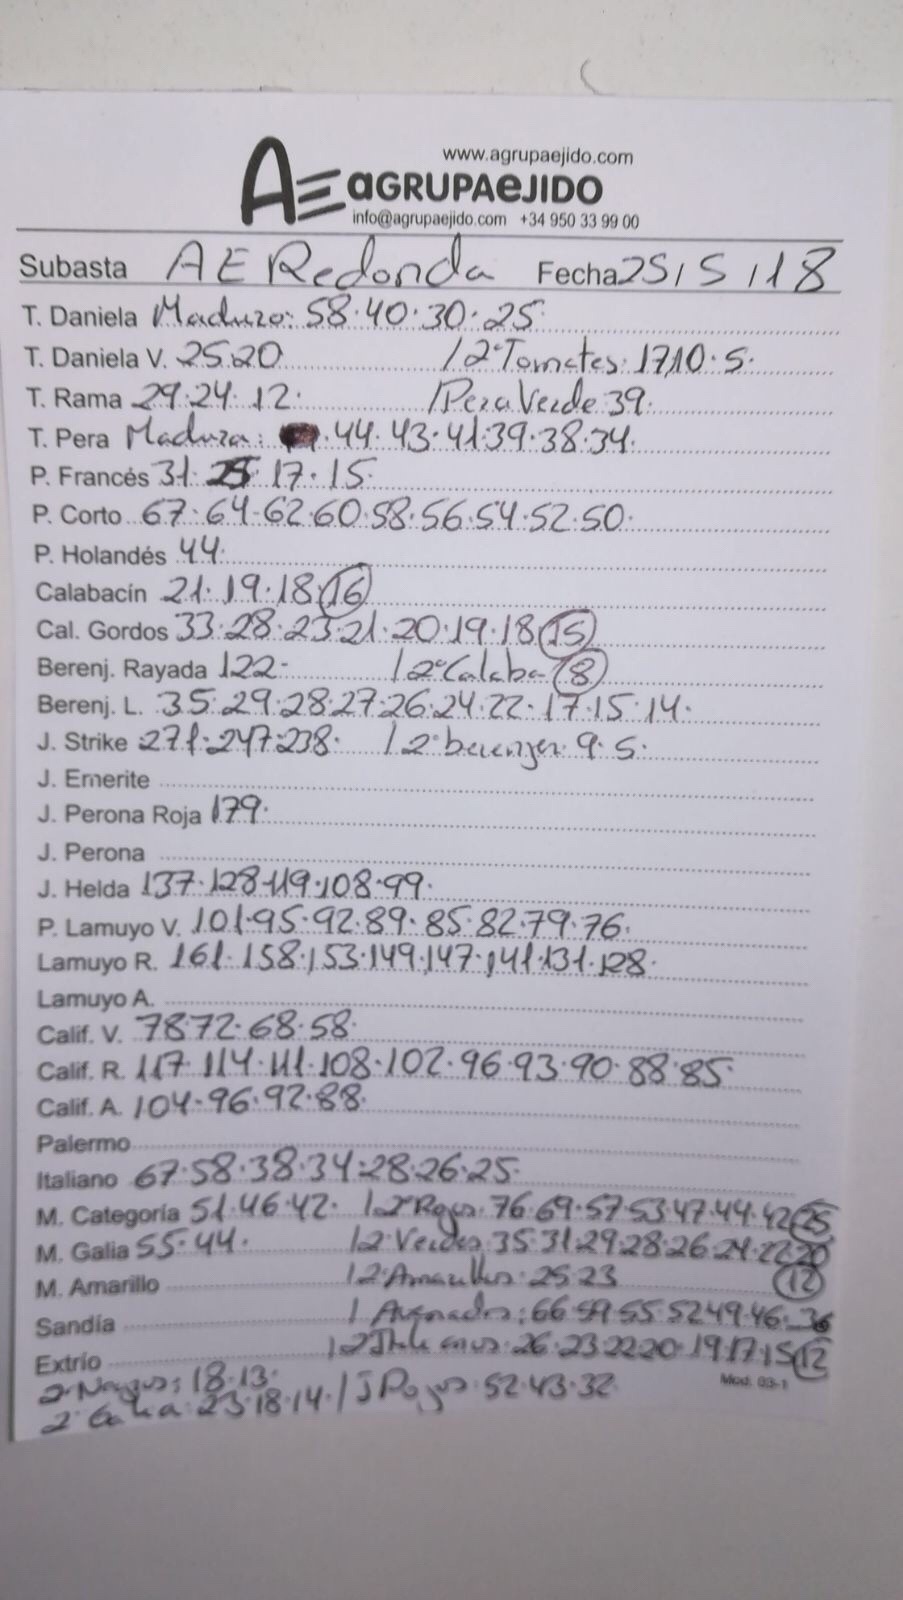 www.agrupaejido.com
AE AGRUPAEJIDO
info@agrupaejido.com +34 950 33 99 00
Subasta AE Redonda Fecha 25/5/18
T. Daniela Maduro: 58·40·30·25
T. Daniela V. 25·20 / 2ª Tomates: 17·10·5·
T. Rama 29·24·12· / Pera Verde 39·
T. Pera Madura: 44·43·41·39·38·34·
P. Francés 31· 17·15·
P. Corto 67·64·62·60·58·56·54·52·50·
P. Holandés 44·
Calabacín 21·19·18·16
Cal. Gordos 33·28·23·21·20·19·18·15
Berenj. Rayada 122· / 2ª Calaba· 8
Berenj. L. 35·29·28·27·26·24·22·17·15·14·
J. Strike 271·247·238· / 2ª berenjen· 9·5·
J. Emerite
J. Perona Roja 179·
J. Perona
J. Helda 137·128·119·108·99·
P. Lamuyo V. 101·95·92·89·85·82·79·76·
Lamuyo R. 161·158·153·149·147·141·131·128·
Lamuyo A.
Calif. V. 78·72·68·58·
Calif. R. 117·114·111·108·102·96·93·90·88·85·
Calif. A. 104·96·92·88·
Palermo
Italiano 67·58·38·34·28·26·25·
M. Categoría 51·46·42· / 2ª Rojos· 76·69·57·53·47·44·42·25
M. Galia 55·44· / 2ª Verdes· 35·31·29·28·26·24·22·20
M. Amarillo / 2ª Amarillos· 25·23 12
Sandía / Asurados: 66·59·55·52·49·46·36
Extrío / 2ª Italianos· 26·23·22·20·19·17·15·12
2ª Negros: 18·13·
2ª Galia: 23·18·14· / J Rojos· 52·43·32
Mod. 03-1